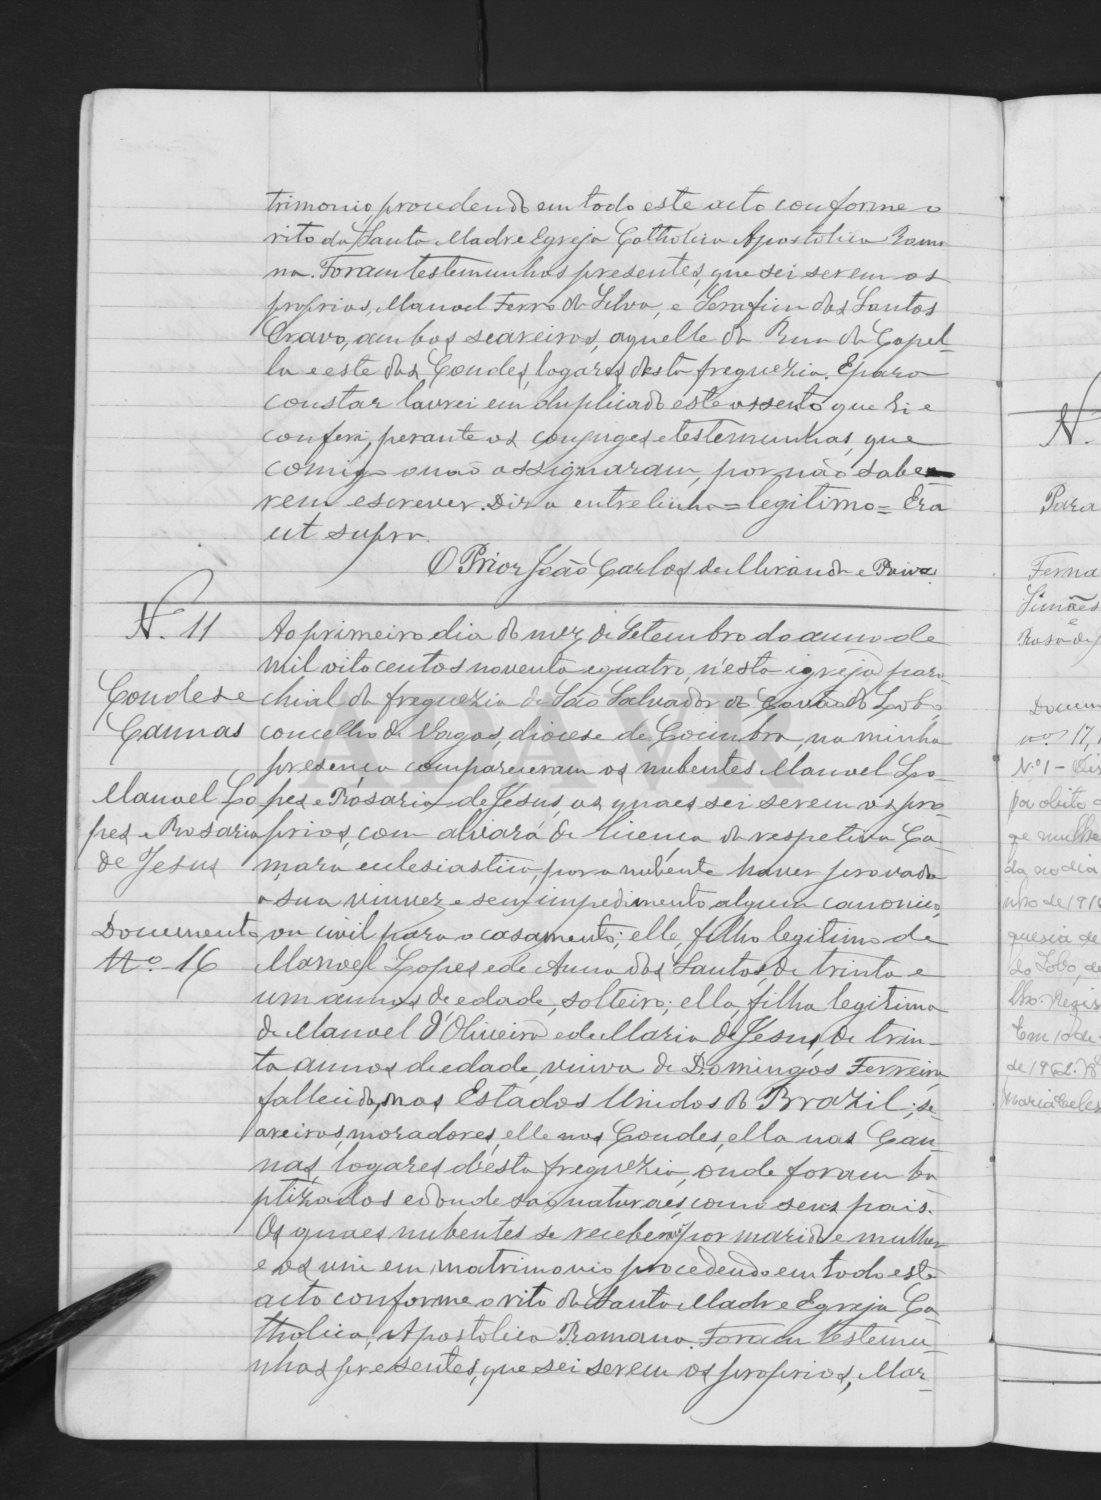 trimonio, procedendo em todo este acto conforme o
rito da Santa Madre Egreja Catholica Apostolica Roma
na. Foram testemunhas presentes, que sei serem os
proprios, Manoel Ferro da Silva, e Serafim dos Santos
Cravo, ambos seareiros, aquelle da Rua da Capel-
la e este dos Condes, logares desta freguezia. E para
constar lavrei em duplicado este assento que li e
conferi, perante os conjuges e testemunhas, que
comigo não assignaram, por não sabe
rem escrever. Diz a entrelinha = legitimo = Era
ut supra.
O Prior João Carlos de Miranda e Paiva
N. 11
Ao primeiro dia do mez de Setembro do anno de
mil oitocentos noventa e quatro, n'esta igreja paro-
Condes e
chial da freguezia de São Salvador do Covão do Lobo,
Cannas
concelho de Vagos, diocese de Coimbra, na minha
presença compareceram os nubentes Manoel Lo-
Manoel Lo
pes e Rosaria de Jesus, os quaes sei serem os pro
pes e Rosaria
prios, com alvará de licença da respetiva Ca-
de Jesus
mara eclesiastica, por a nubente haver provado
a sua viuvez e sem impedimento algum canonico,
Documento
ou civil para o casamento; elle, filho legitimo de
Nº 16
Manoel Lopes e de Anna dos Santos, de trinta e
um annos de edade, solteiro; ella, filha legitima
de Manoel d'Oliveira e de Maria de Jesus, de trin-
ta annos de edade, viuva de Domingos Ferreira
fallecido, nos Estados Unidos do Brazil; se-
areiros, moradores, elle nos Condes, ella nas Can-
nas, logares d'esta freguezia, onde foram ba
ptizados e d'onde são naturaes como seus pais.
Os quaes nubentes se receberam por marido e mulher
e os uni em matrimonio procedendo em todo este
acto conforme o rito da Santa Madre Egreja Ca-
tholica, Apostolica Romana. Foram testemu-
nhas presentes, que sei serem os proprios, Mar-
N.
Para
Ferna
Simões
e
Rosa de J
Docum
nos 17,
N.º 1 -
pa obito
ge mulhe
da no dia
nho de 191
guesia de
do Lobo, de
lho. Regis
Em 10 de
de 196
Maria Celes
ADAVR